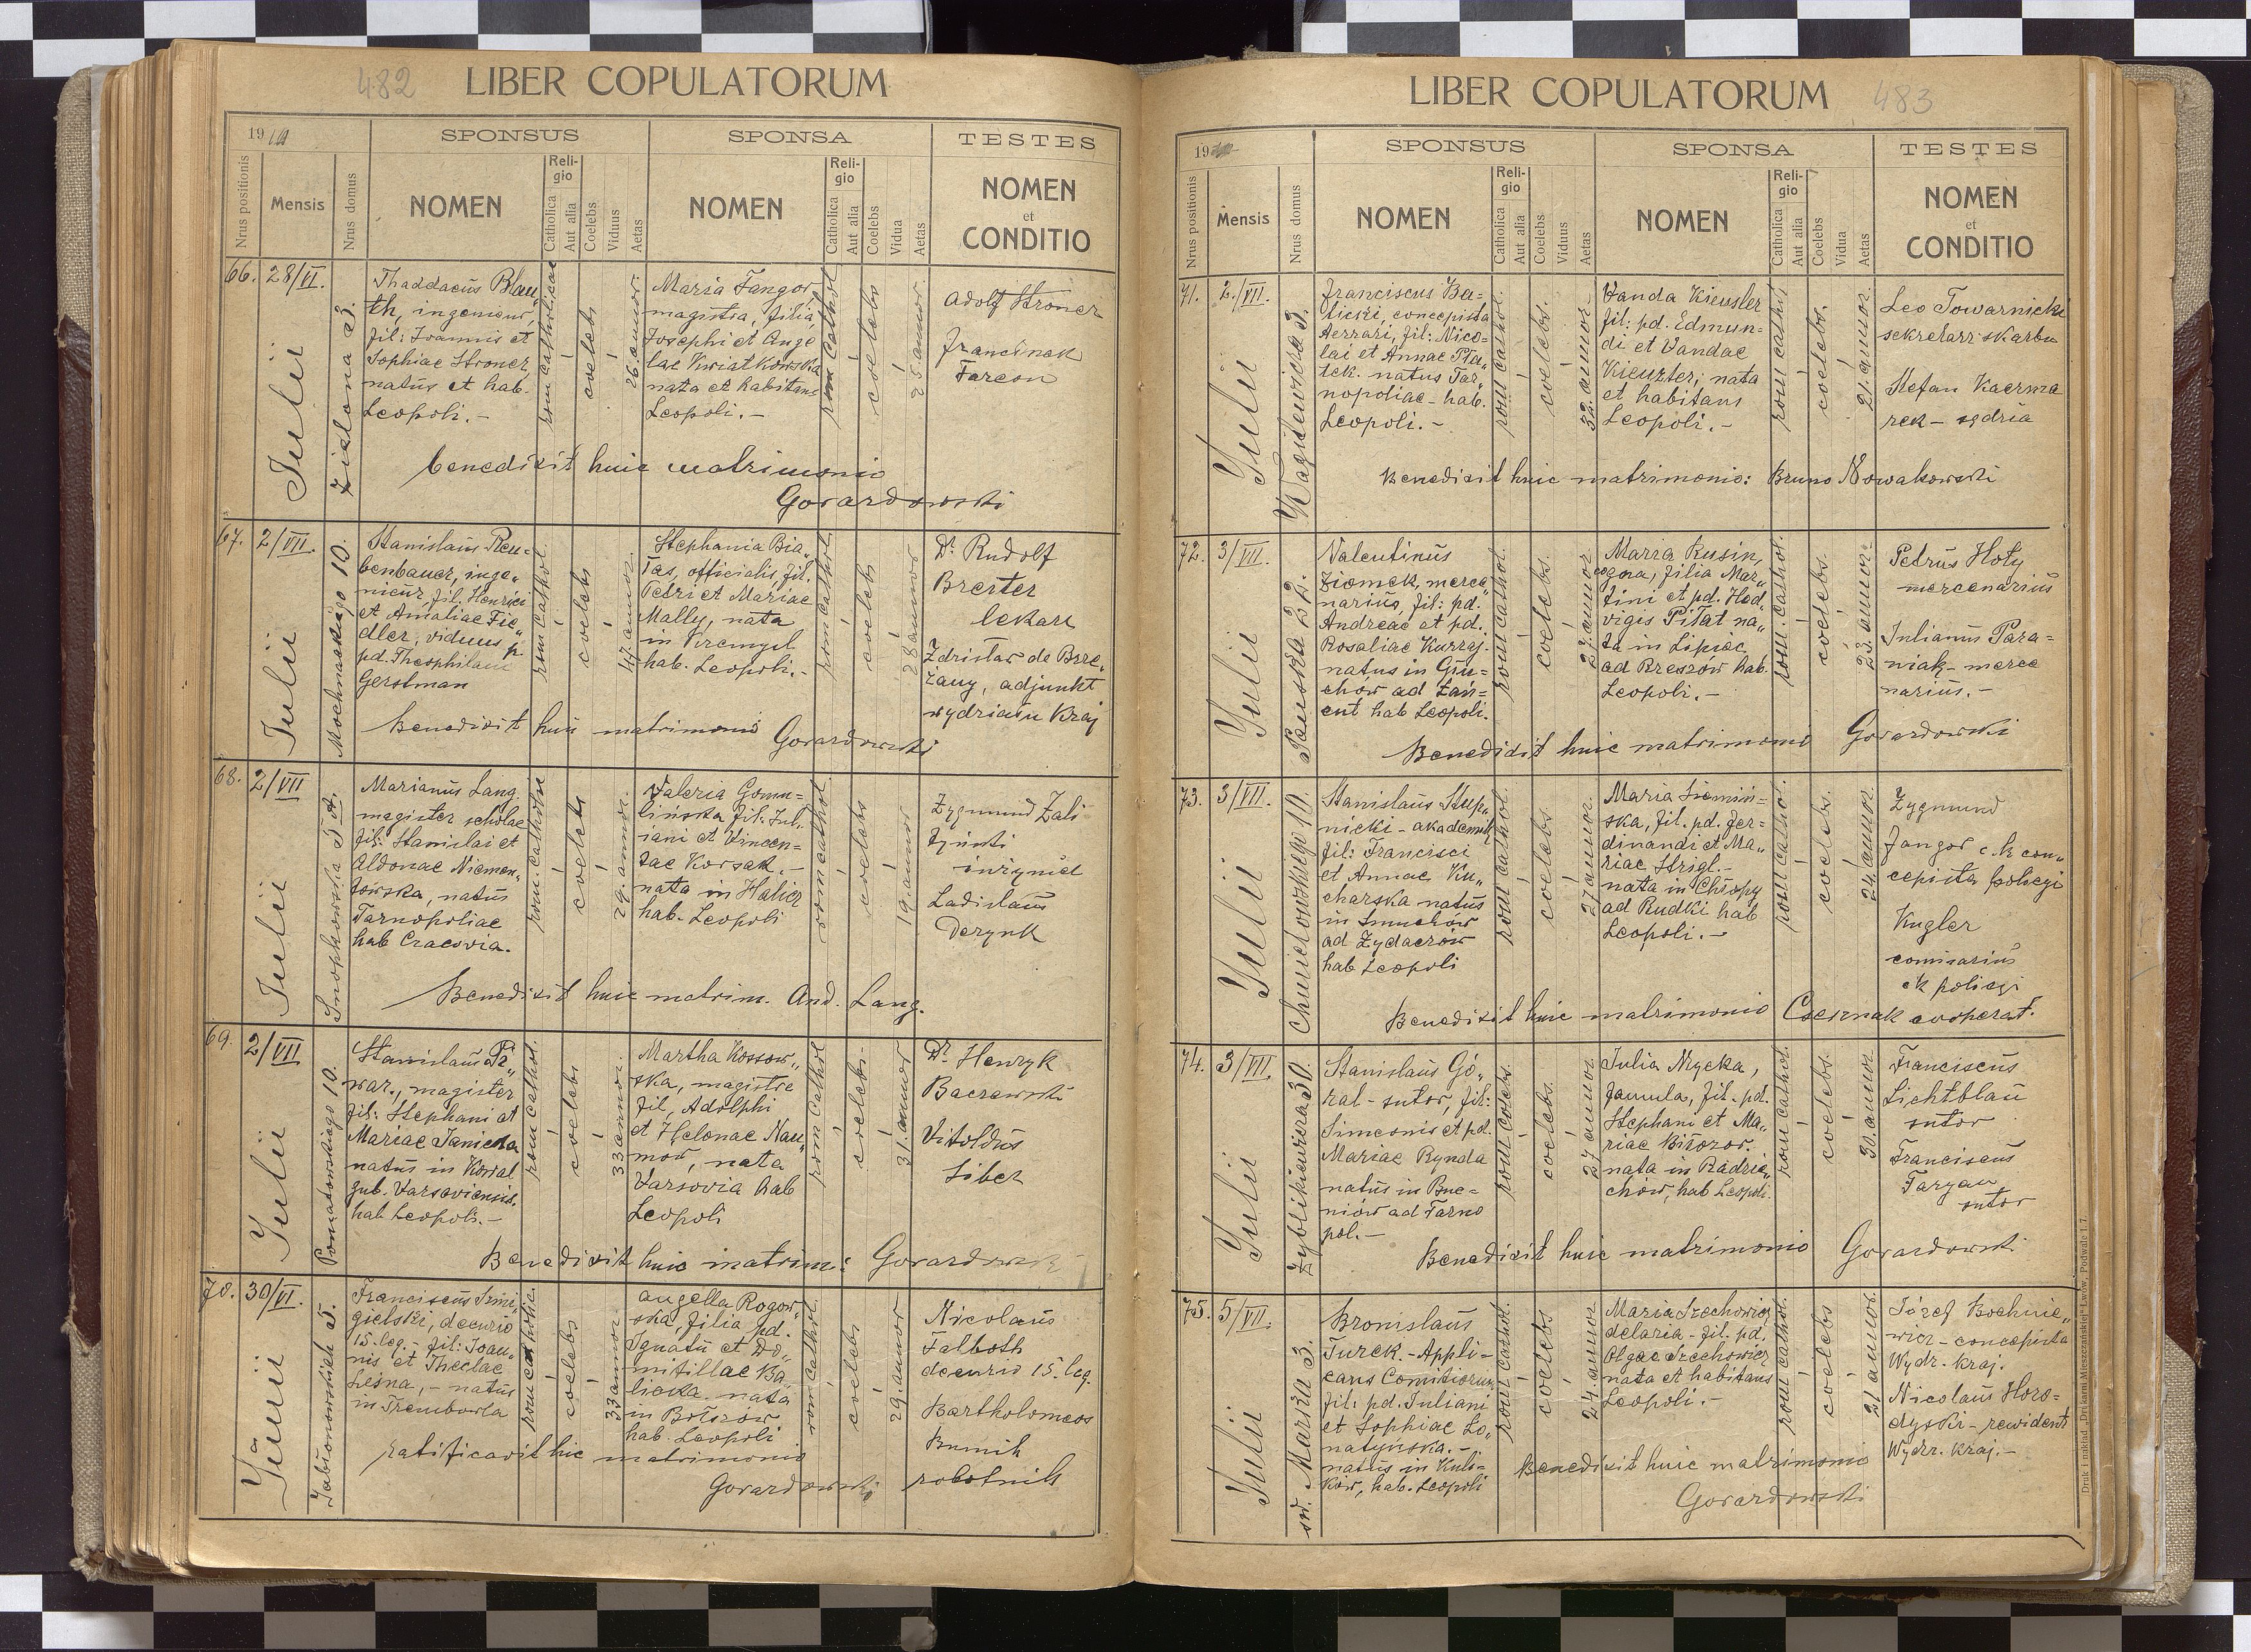 482
LIBER COPULATORUM
19
SPONSUS
SPONSA
TESTES
Nrus positionis
Mensis
Nrus domus
NOMEN
Religio
Catholica
Aut alia
Coelebs
Viduus
Aetas
NOMEN
Religio
Catholica
Aut alia
Coelebs
Vidua
Aetas
NOMEN
et
CONDITIO
66. 28/VI.
Julii
Zielona
Thaddaeus Blau„
th, ingenieur,
fil: Joannis et
Sophiae Stroner,
natus et hab.
Leopoli.-
rom catholica
coelebs
26. annor.
Maria Fangor
magistra, filia
Josephi et Ange
lae Kwiatkowska
nata et habitans
Leopoli.-
rom cathol
coelebs
25. annor.
Adolf Stroner
Franciszek
benedixit huic matrimonio
Gorardowski
67. 2/VII.
Julii
Mochnackiego 10.
Stanislaus Reu-
benbauer, inge„
nieur, fil. Henrici
et Amaliae Fie„
dler, viduus p.
pd. Theophilam
Gerstman
rom cathol.
coelebs
47 annor.
Stephania Bia„
łas, officialis, fil.
Petri et Mariae
Mally, nata
in Przemysl
hab. Leopoli.-
rom cathol.
coelebs
28 annor
Dr. Rudolf
Breiter
lekarz
Zdzisław de Brze„
zany, adjunkt
wydziału Kraj
Benedixit huic matrimonio Gorardowski
68. 2/VII
Julii
Snopkowska 5 A.
Marianus Lang.
magister scholae
fil: Stanislai et
Aldonae Niemen„
towska, natus
Tarnopoliae
hab Cracovia.
rom. cathol
coelebs
29. annor.
Valeria Gomu=
lińska fil: Jul„
iani et Vincen=
tae Korsak.-
nata in Halicz
hab. Leopoli
rom cathol.
coelebs
19. annor
Zygmund
Ladislaus
Benedixit huic matrim. And. Lang.
69. 2/VII
Julii
Poniatowskiego 10.
magister
fil: Stephani et
Mariae Janicka
natus in Kowal
gub. Varsaviensis,
hab Leopoli.-
rom cathol.
coelebs
33 annor.
Martha Kossow„
ska, magistra
fil, Adolphi
et Helenae Nau„
mow, nata
Varsovia hab
Leopoli
rom cathol
coelebs-
31. annor
Dr. Henryk
Baczewski
Vitoldus
Liber
Benedixit huic matrim: Gorardowski
70. 30/VI.
Junii
Jabłonowskich 5.
Franciscus Szmi„
gielski, decurio
15. leg.- fil: Joan„
nis et Theclae
Leśna, - natus
in Trembowla
rom catholica
coelebs
33 annor.
Angella Rogow„
ska, filia pd.
Ignatii et Do„
mitillae Ba„
licka. nata
in Bołszów
hab. Leopoli
rom cathol.
coelebs
29. annor
Nicolaus
Falboth
decurio 15. leg.
Bartholomeos
robotnik
ratificavit hic matrimonio
Gorardowski
LIBER COPULATORUM
483
19
SPONSUS
SPONSA
TESTES
Nrus positionis
Mensis
Nrus domus
NOMEN
Religio
Catholica
Aut alia
Coelebs
Viduus
Aetas
NOMEN
Religio
Catholica
Aut alia
Coelebs
Vidua
Aetas
NOMEN
et
CONDITIO
71. 2./VII.
Julii
Franciscus Ba=
licki, concepista
aerrari, fil: Nico=
lai et Annae Pta„
tek. natus Tar„
nopoliae - hab.
Leopoli.-
rom cathol.
coelebs.
32. annor.
Vanda Kieusler
fil: pd. Edmun=
di et Vandae
Kieuzler; nata
et habitans
Leopoli.-
rom cathol.
coelebs.
21. annor.
Leo Towarnicki
sekretarz skarbu
Stefan Kaczma
rek - sędzia
Benedixit huic matrimonio: Bruno Nowakowski
72. 3/VII.
Julii
Panska 22.
Valentinus
Ziomek, merce„
narius, fil: pd.
Andreae et pd.
Rosaliae Kurraj.
natus in Głu=
chów ad Łań=
cut hab Leopoli.
rom cathol.
coelebs.
27. annor.
Maria Kusin,
filia Mar„
tini et pd. Hed„
vigis Pitat na„
ta in Lipie,
ad Rzeszów hab.
Leopoli.-
rom. cathol.
coelebs.
23. annor.
Petrus Hoty
mercenarius
Julianus Para=
niak - merce
narius.-
Benedixit huic matrimonio Gorardowski
73. 3/VII.
Julii
Chmielowskiego 10.
Stanislaus Stup„
nicki - akademik
fil: Francisci
et Annae Ku„
charska natus
in
ad Zydaczów
hab Leopoli
rom cathol.
coelebs.
27 annor.
Maria Siemiń=
ska, fil. pd. Fer=
dinandi et Ma„
riae Strigl.-
nata in Chłopy
ad Rudki hab
Leopoli.-
rom cathol.
coelebs.
24 annor.
Zygmund
Fangor c. k. con„
cepista policyi
Kugler
comisarius
ck policyi
Benedixit huic matrimonio Czeznak cooperat.
74. 3/VII.
Julii
Zyblikiewicza 30.
Stanislaus Gó„
ral - sutor, fil:
Simeonis et pd.
Mariae Rynda
natus in Buc=
niów ad Tarno
pol.-
coelebs.
27 annor.
Julia Mycka,
famula, fil. pd.
Stephani et Ma„
riae
nata in Radzie„
chów, hab Leopoli.
rom cathol.
coelebs.
30. annor.
Franciscus
Lichtblau
sutor
Franciscus
Targan
sutor
Benedixit huic matrimonio Gorardowski
75. 5/VII.
Julii
sw. Marka 3.
Bronislaus
Turek. - Appli=
cans Comitiorum
fil: pd. Juliani
et Sophiae Lo„
natyńska.-
natus in Kuli=
kow, hab. Leopoli
rom cathol.
coelebs
24. annor
Maria Szechowicz
fil. pd.
Olgae Szechowicz
nata et habitans
Leopoli.-
rom cathol.
coelebs
21 annor.
Józef Bochnie„
wicz - concepista
Wydz. kraj.
Nicolaus Horo=
dyski - rewident
Wydz. kraj.-
Benedixit huic matrimonio
Gorardowski
Druk i nakład „Drukarni Mieszczańskiej" Lwów, Podwale l. 7.